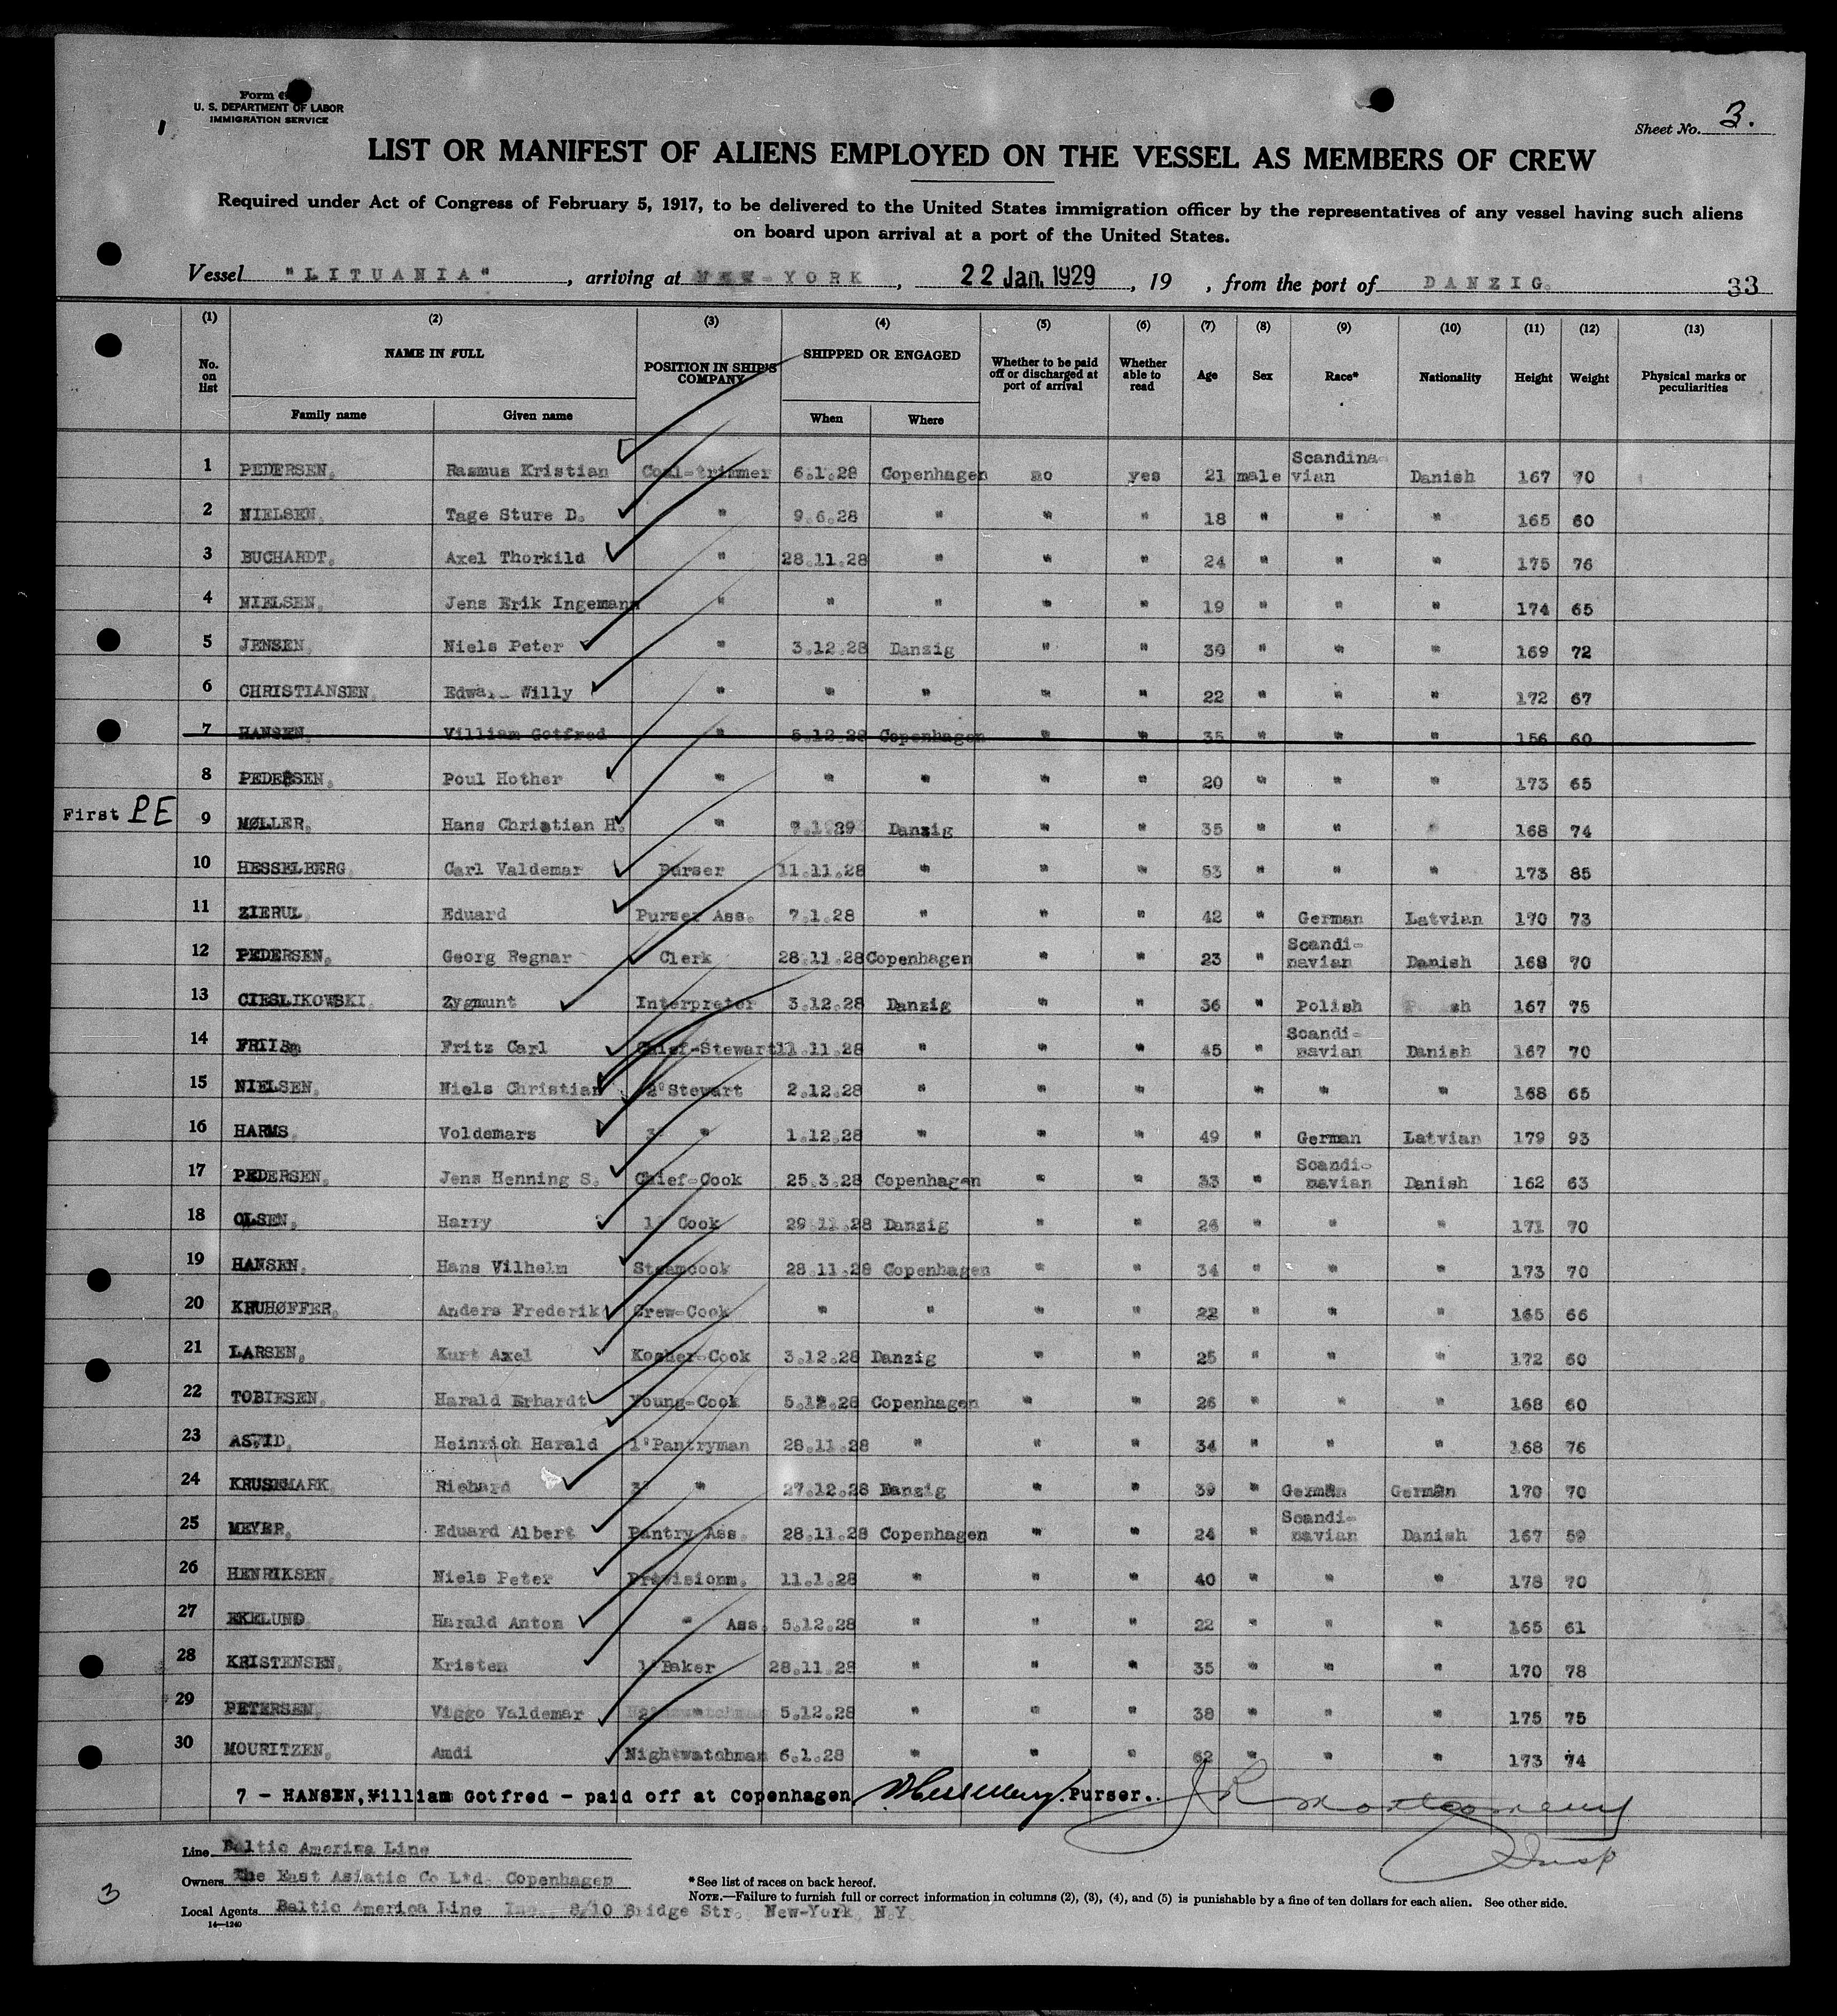 Form
U. S. DEPARTMENT OF LABOR
IMMIGRATION SERVICE
Sheet No. 3.
LIST OR MANIFEST OF ALIENS EMPLOYED ON THE VESSEL AS MEMBERS OF CREW
Required under Act of Congress of February 5, 1917, to be delivered to the United States immigration officer by the representatives of any vessel having such aliens
on board upon arrival at a port of the United States.
Vessel "LITUANIA", arriving at NEW-YORK, 22 Jan. 1929, 19 , from the port of DANZIG. 33
(1) (2) (3) (4) (5) (6) (7) (8) (9) (10) (11) (12) (13)
No. on list NAME IN FULL POSITION IN SHIP'S COMPANY SHIPPED OR ENGAGED Whether to be paid off or discharged at port of arrival Whether able to read Age Sex Race* Nationality Height Weight Physical marks or peculiarities
Family name Given name When Where
1 PEDERSEN. Rasmus Kristian Coal-trimmer 6.1.28 Copenhagen no yes 21 male Scandina-vian Danish 167 70
2 NIELSEN. Tage Sture D. " 9.6.28 " " " 18 " " " 165 60
3 BUCHARDT. Axel Thorkild " 28.11.28 " " " 24 " " " 175 76
4 NIELSEN. Jens Erik Ingemann " " " " " 19 " " " 174 65
5 JENSEN. Niels Peter " 3.12.28 Danzig " " 30 " " " 169 72
6 CHRISTIANSEN. Willy " " " " " 22 " " " 172 67
7 HANSEN. Villiam Gotfred " 5.12.28 Copenhagen " " 35 " " " 156 60
8 PEDERSEN. Poul Hother " " " " " 20 " " " 173 65
First PE 9 MØLLER. Hans Christian H. " 7.1.29 Danzig " " 35 " " " 168 74
10 HESSELBERG. Carl Valdemar Purser 11.11.28 " " " 53 " " " 173 85
11 ZIERUL. Eduard Purser Ass. 7.1.28 " " " 42 " German Latvian 170 73
12 PEDERSEN. Georg Regnar Clerk 28.11.28 Copenhagen " " 23 " Scandi-navian Danish 168 70
13 CIESLIKOWSKI. Zygmunt Interpreter 3.12.28 Danzig " " 36 " Polish 167 75
14 FRIIS. Fritz Carl Chief-Stewart 11.11.28 " " " 45 " Scandi-navian Danish 167 70
15 NIELSEN. Niels Christian 2' Stewart 2.12.28 " " " " " " 168 65
16 HARMS. Voldemars 3' " 1.12.28 " " " 49 " German Latvian 179 93
17 PEDERSEN. Jens Henning S. Chief-Cook 25.3.28 Copenhagen " " 33 " Scandi-navian Danish 162 63
18 OLSEN. Harry 1' Cook 29.11.28 Danzig " " 26 " " " 171 70
19 HANSEN. Hans Vilhelm Steamcook 28.11.28 Copenhagen " " 34 " " " 173 70
20 KRUHØFFER. Anders Frederik Crew-Cook " " " " 22 " " " 165 66
21 LARSEN. Kurt Axel Kosher-Cook 3.12.28 Danzig " " 25 " " " 172 60
22 TOBIESEN. Harald Erhardt Young-Cook 5.12.28 Copenhagen " " 26 " " " 168 60
23 Heinrich Harald 1' Pantryman 28.11.28 " " " 34 " " " 168 76
24 KRUSEMARK. Richard 3' " 27.12.28 Danzig " " 39 " German German 170 70
25 MEYER. Eduard Albert Pantry Ass. 28.11.28 Copenhagen " " 24 " Scandi-navian Danish 167 59
26 HENRIKSEN. Niels Peter Provisionm. 11.1.28 " " " 40 " " " 178 70
27 EKELUND. Harald Anton " Ass. 5.12.28 " " " 22 " " " 165 61
28 KRISTENSEN. Kristen 1' Baker 28.11.28 " " " 35 " " " 170 78
29 PETERSEN. Viggo Valdemar 5.12.28 " " " 38 " " " 175 75
30 MOURITZEN. Amdi Nightwatchman 6.1.28 " " " 62 " " " 173 74
7 - HANSEN, Villiam Gotfred - paid off at Copenhagen. Purser. J R Montgomery
Insp
Line Baltic America Line
Owners The East Asiatic Co Ltd. Copenhagen
*See list of races on back hereof.
NOTE.—Failure to furnish full or correct information in columns (2), (3), (4), and (5) is punishable by a fine of ten dollars for each alien. See other side.
3
Local Agents Baltic America Line Inc. 8/10 Bridge Str. New-York N.Y.
14—1240